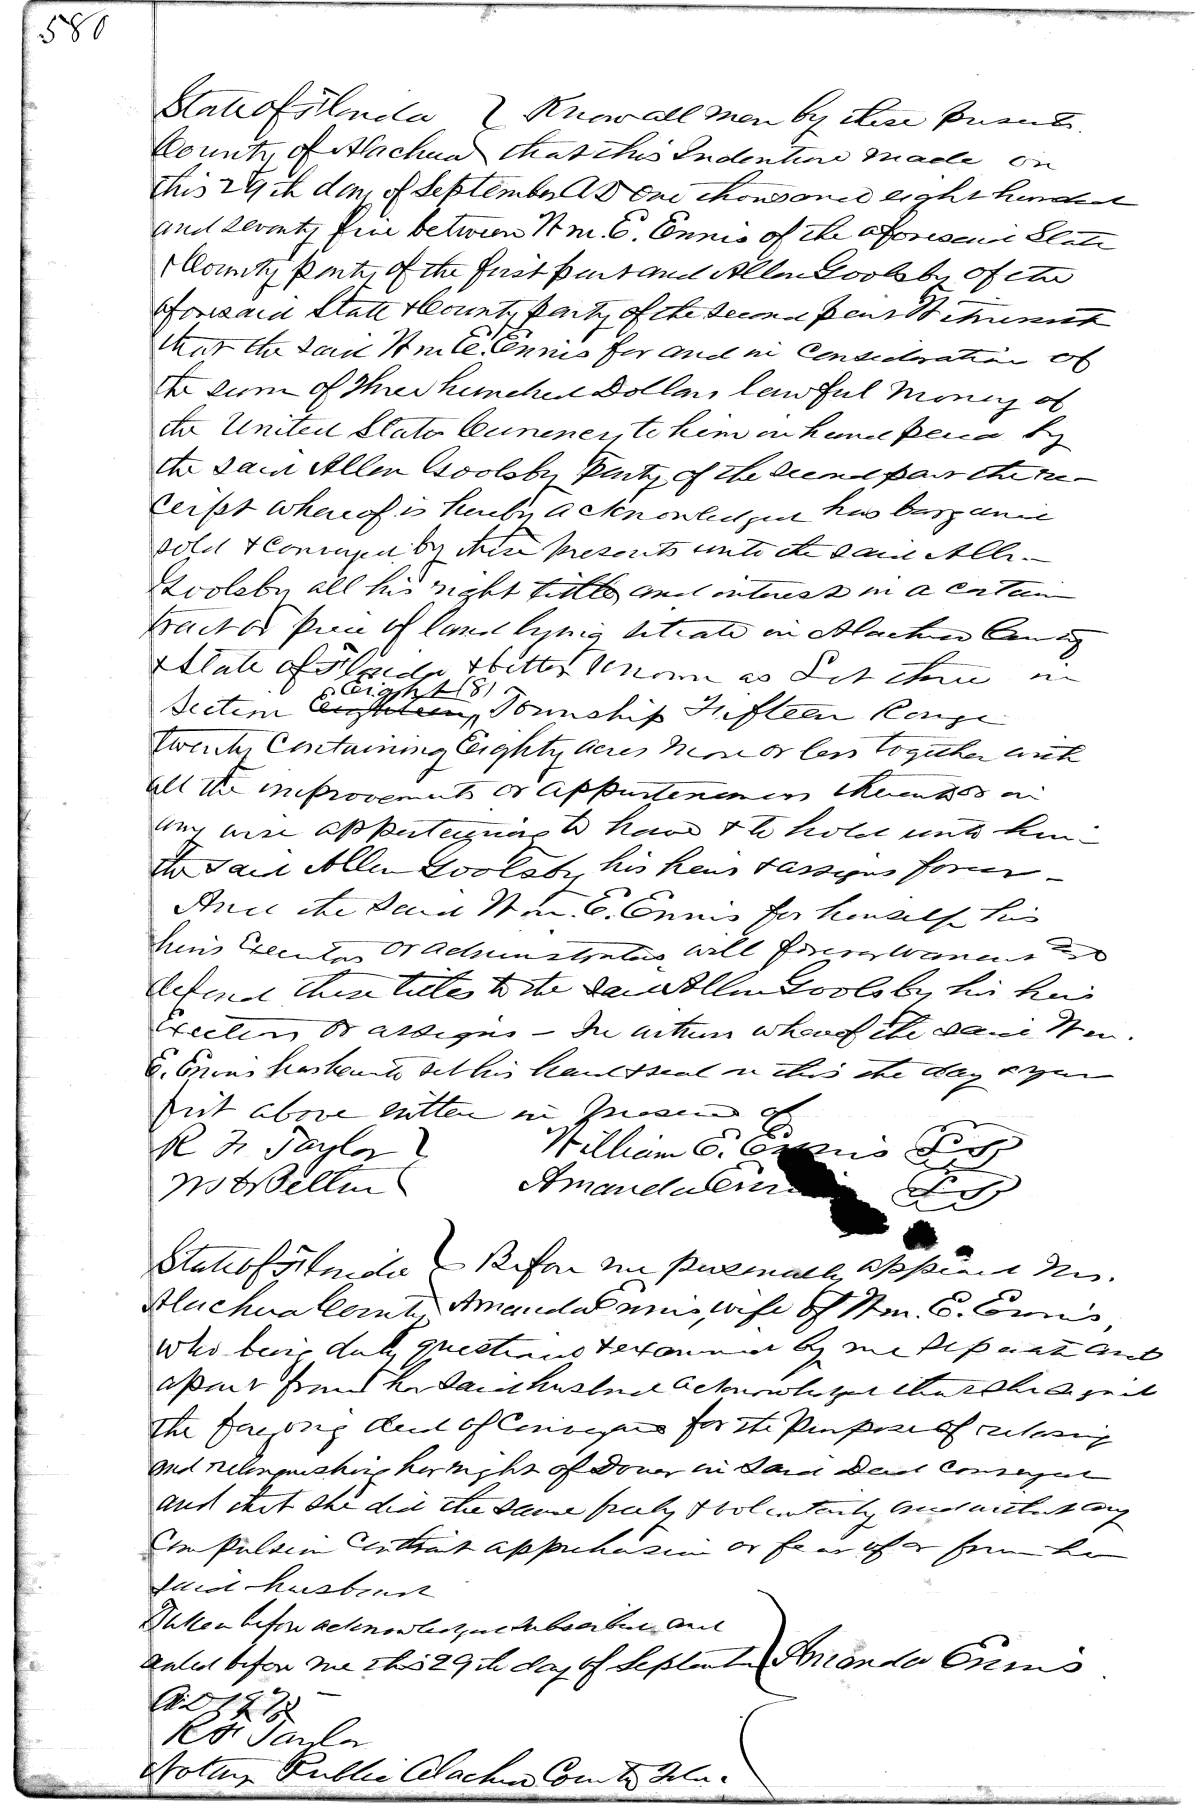 580
State of Florida } Know all men by these presents
County of Alachua } that this Indenture made on
this 29th day of September AD one thousand eight hundred
and seventy five between Wm. E. Ennis of the aforesaid State
& County party of the first part and Allen Goolsby of the
aforesaid State & County party of the second part Witnesseth
that the said Wm E. Ennis for and in consideration of
the sum of three hundred Dollars lawful money of
the United States Currency to him in hand paid by
the said Allen Goolsby Party of the second part the re-
ceipt whereof is hereby acknowledged has bargained
sold & conveyed by these presents unto the said Allen
Goolsby all his right title and interest in a certain
tract or piece of land lying situate in Alachua County
& State of Florida & better known as Lot three in
Section Eighteen Eight (8) Township Fifteen Range
Twenty Containing Eighty acres more or less together with
all the improvements or appurtenances thereunto or in
any wise appertaining to have & to hold unto him
the said Allen Goolsby his heirs & assigns forever -
And the said Wm. E. Ennis for himself his
heirs Executors or administrators will forever warrant and
defend these titles to the said Allen Goolsby his heirs
Executors or assigns - In witness whereof the said Wm.
E. Ennis has hereunto set his hand & seal on this the day & year
first above written in presence of
R F Taylor } William E. Ennis LS
Belton } Amanda Ennis LS
State of Florida } Before me personally appeared Mrs.
Alachua County } Amanda Ennis, wife of Wm. E. Ennis,
who being duly questioned & examined by me separate and
apart from her said husband acknowledged that she signed
the foregoing deed of Conveyance for the Purpose of relasing
and relinquishing her right of Dower in said Deed conveyed
and that she did the same freely & voluntarily and without any
Compulsion Constraint apprehension or fear of or from her
said husband
Taken before acknowledged subscribed and
sealed before me this 29th day of September } Amanda Ennis.
A.D 1875
R F Taylor
Notary Public Alachua County Fla.